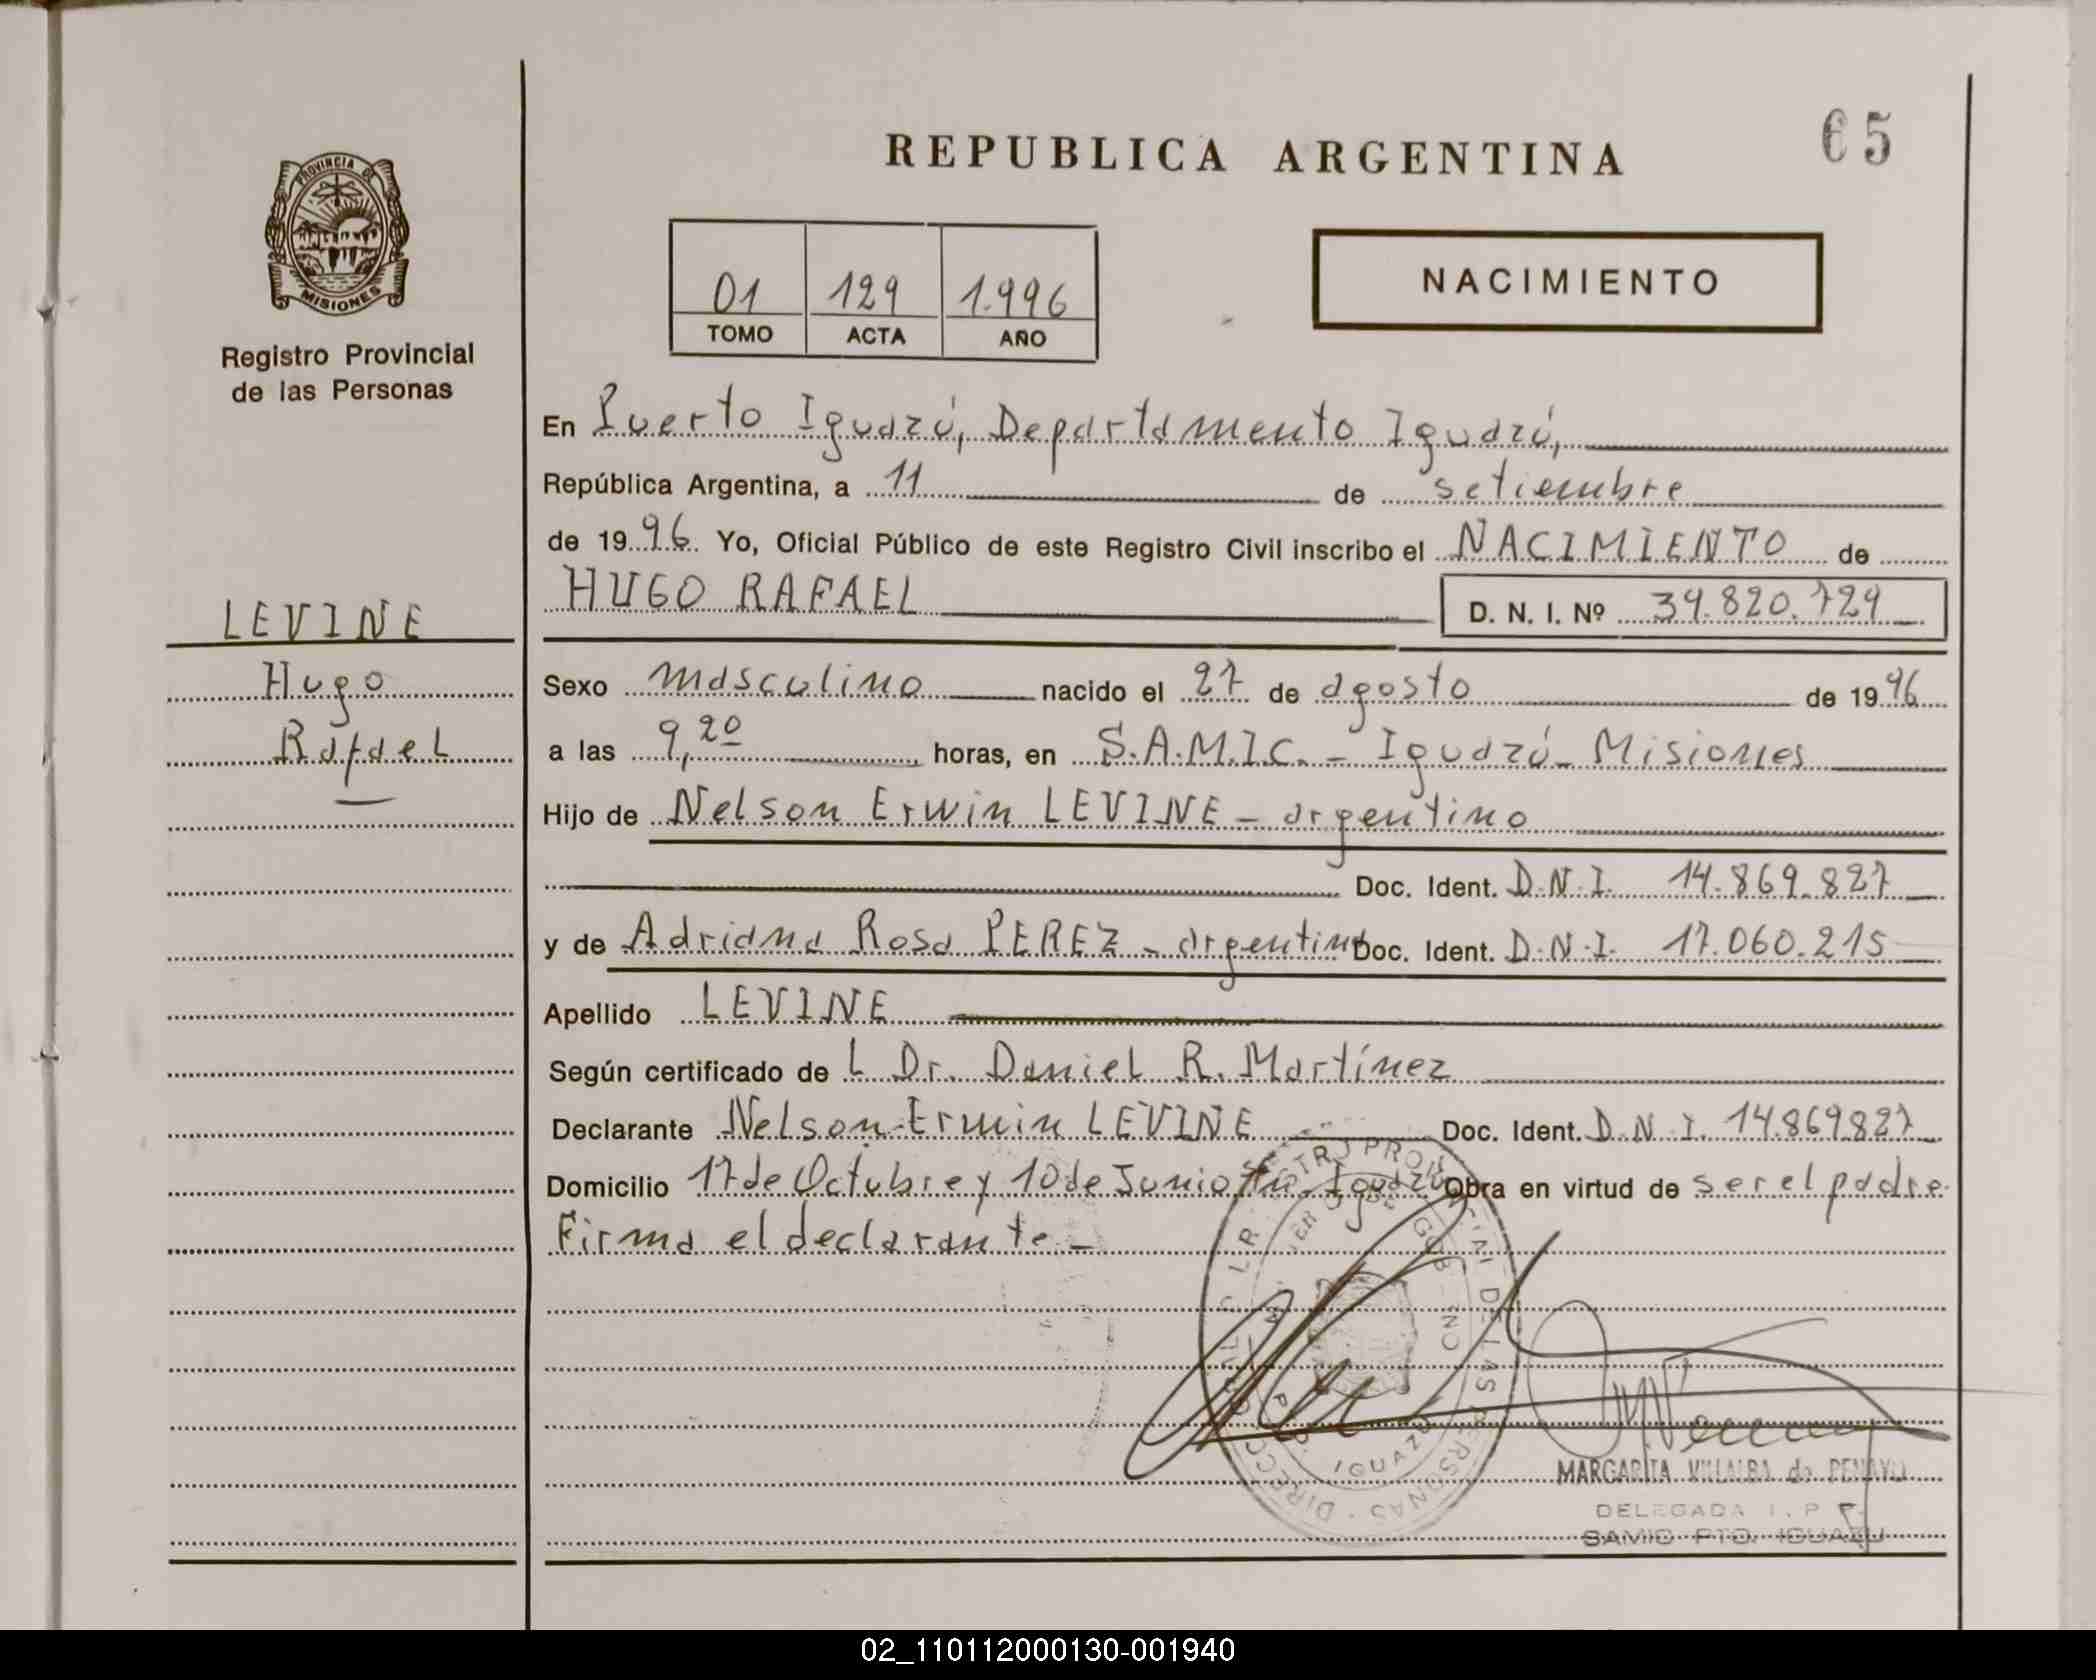 65
REPUBLICA ARGENTINA
PROVINCIA DE
MISIONES
Registro Provincial
de las Personas
01 129 1.996
TOMO ACTA AÑO
NACIMIENTO
En Puerto Iguazú, Departamento Iguazú,
República Argentina, a 11 de setiembre
de 1996 Yo, Oficial Público de este Registro Civil inscribo el NACIMIENTO de
HUGO RAFAEL D. N. I. Nº 39.820.729
LEVINE
Hugo
Rafael
Sexo masculino nacido el 27 de agosto de 1996
a las 9,20 horas, en S.A.M.I.C. - Iguazú - Misiones
Hijo de Nelson Erwin LEVINE - argentino
Doc. Ident. D.N.I. 14.869.827
y de Adriana Rosa PEREZ - argentina Doc. Ident. D.N.I. 17.060.215
Apellido LEVINE
Según certificado de L Dr. Daniel R. Martínez
Declarante Nelson Erwin LEVINE Doc. Ident. D.N.I. 14.869.827
Domicilio 17 de Octubre y 10 de Junio Iguazú Obra en virtud de ser el padre.
Firma el declarante -
PROVINCIAL DE LAS PERSONAS
IGUAZU
MARGARITA VILLALBA de PENAYO
DELEGADA I. P.
SAMIC PTO. IGUAZU
02_110112000130-001940